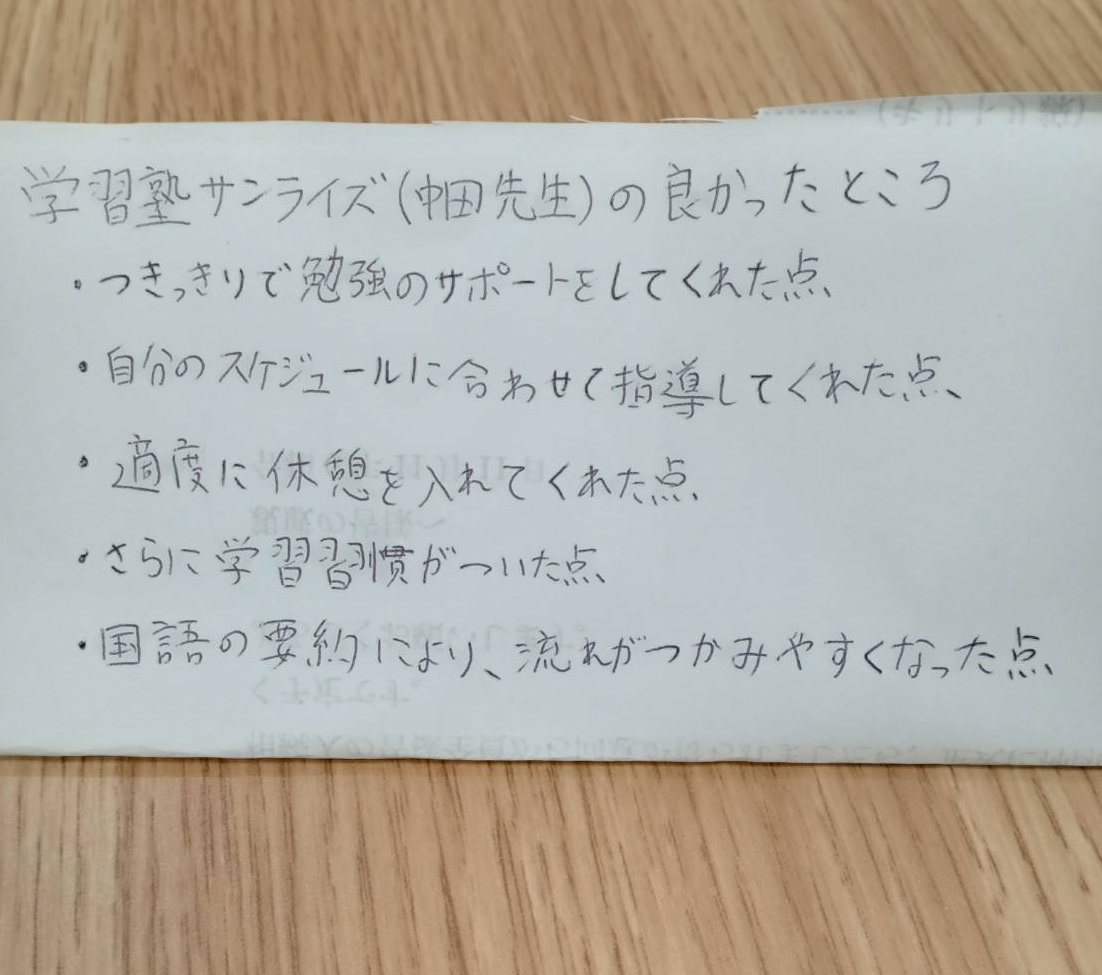 学習塾サンライズ(中田先生)の良かったところ
・つきっきりで勉強のサポートをしてくれた点、
・自分のスケジュールに合わせて指導してくれた点、
・適度に休憩を入れてくれた点、
・さらに学習習慣がついた点、
・国語の要約により、流れがつかみやすくなった点、